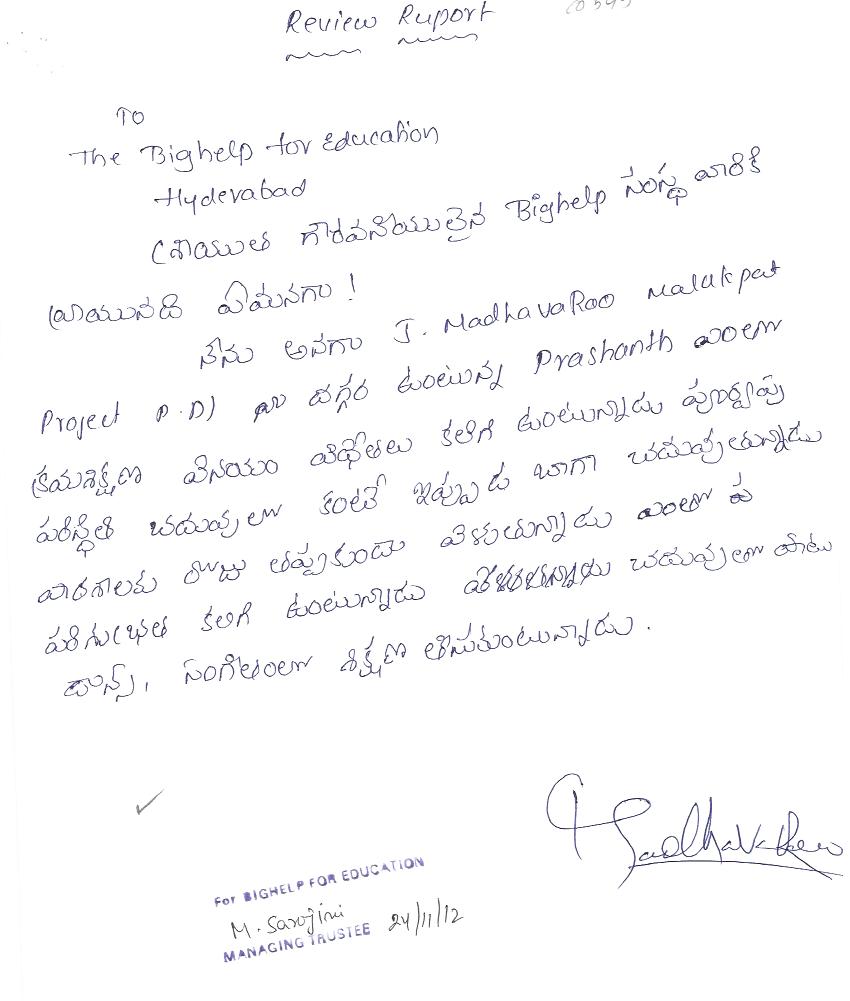 Review Ruport
TO
The Bighelp for Education
Hyderabad
శ్రీయుత గౌరవనీయులైన Bighelp సంస్థ వారికి
వ్రాయునది ఏమనగా!
నేను అనగా J. MadhavaRao Malakpat
Project P.D) దగ్గర ఉంటున్న Prashanth
క్రమశిక్షణ వినయం విధేతలు కలిగి ఉంటున్నాడు పూర్వపు
పరిస్థితి చదువులో కంటే ఇప్పుడు బాగా చదువుతున్నాడు
రోజు తప్పకుండా వెళుతున్నాడు
పరిశుభ్రత కలిగి ఉంటున్నాడు చదువుతో పాటు
డాన్స్, సంగీతంలో శిక్షణ తీసుకుంటున్నాడు.
JMadhavaRao
For BIGHELP FOR EDUCATION
M. Sarojini
MANAGING TRUSTEE 24/11/12